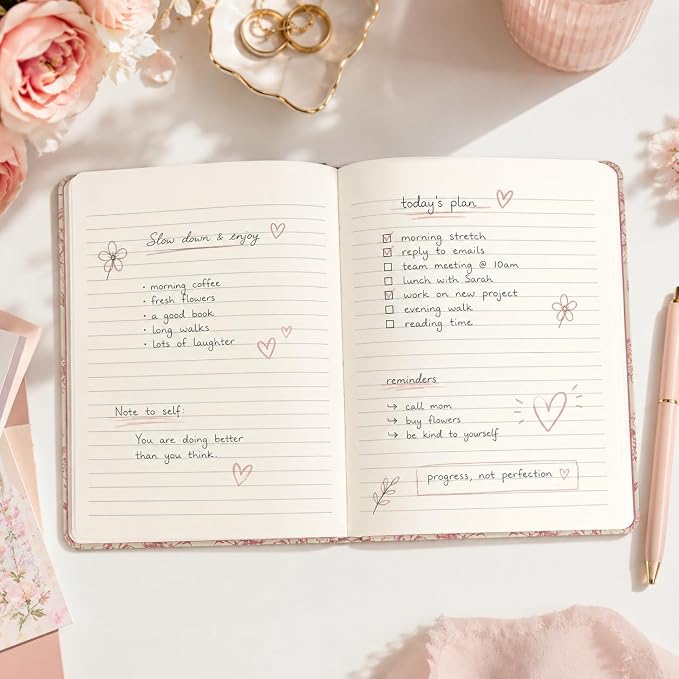 Slow down & enjoy
· morning coffee
· fresh flowers
· a good book
· long walks
· lots of laughter
Note to self:
You are doing better
than you think.
today's plan
☑ morning stretch
☑ reply to emails
☐ team meeting @ 10am
☐ lunch with Sarah
☑ work on new project
☐ evening walk
☐ reading time
reminders
→ call mom
→ buy flowers
→ be kind to yourself
progress, not perfection ♡